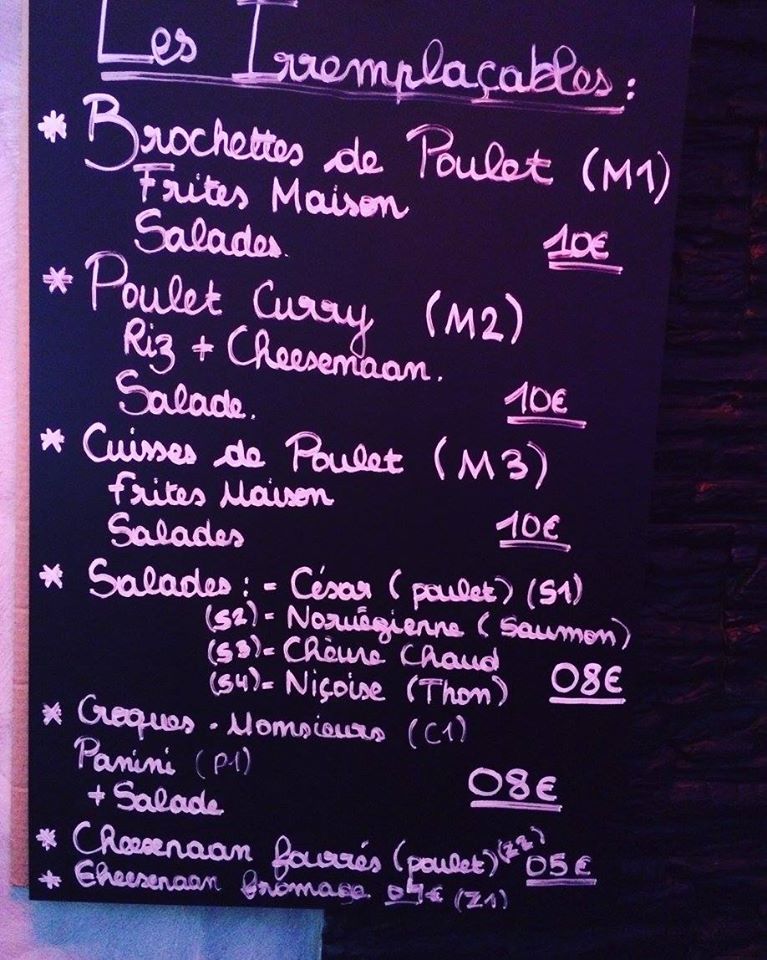 Les Irremplaçables :
* Brochettes de Poulet (M1)
Frites Maison
Salades. 10€
* Poulet Curry (M2)
Riz + Cheesenaan.
Salade. 10€
* Cuisses de Poulet (M3)
Frites Maison
Salades 10€
* Salades : = César (poulet) (S1)
(S2) = Norvégienne (Saumon)
(S3) = Chèvre Chaud
(S4) = Niçoise (Thon) 08€
* Croques - Monsieurs (C1)
Panini (P1)
+ Salade 08€
* Cheesenaan fourrés (poulet) (Z2) 05€
* Cheesenaan fromage (Z1)